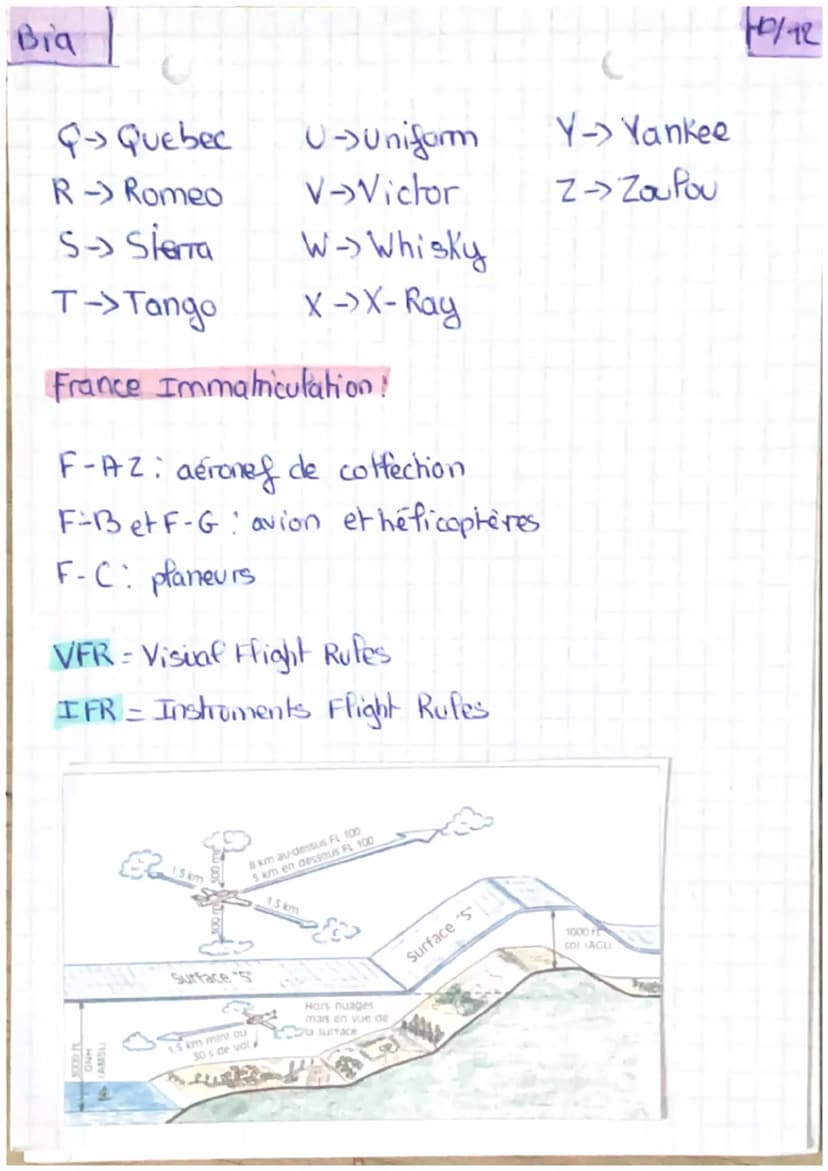 Bia
10/12
Q→ Quebec U→Uniform Y→ Yankee
R→ Romeo V→Victor Z→Zoulou
S→ Sierra W→Whisky
T→Tango X→X-Ray
France Immatriculation:
F-AZ: aéronef de collection
F-B et F-G: avion et hélicoptères
F-C: planeurs
VFR = Visual Flight Rules
IFR = Instruments Flight Rules
8 km au-dessus FL 100
5 km en dessous FL 100
1,5 km
300 m
1,5 km
300 m
Surface "S"
Surface "S"
1000 ft
sol (AGL)
Hors nuages
mais en vue de
la surface
1,5 km mini ou
30 s de vol
3000 ft
QNH
(AMSL)